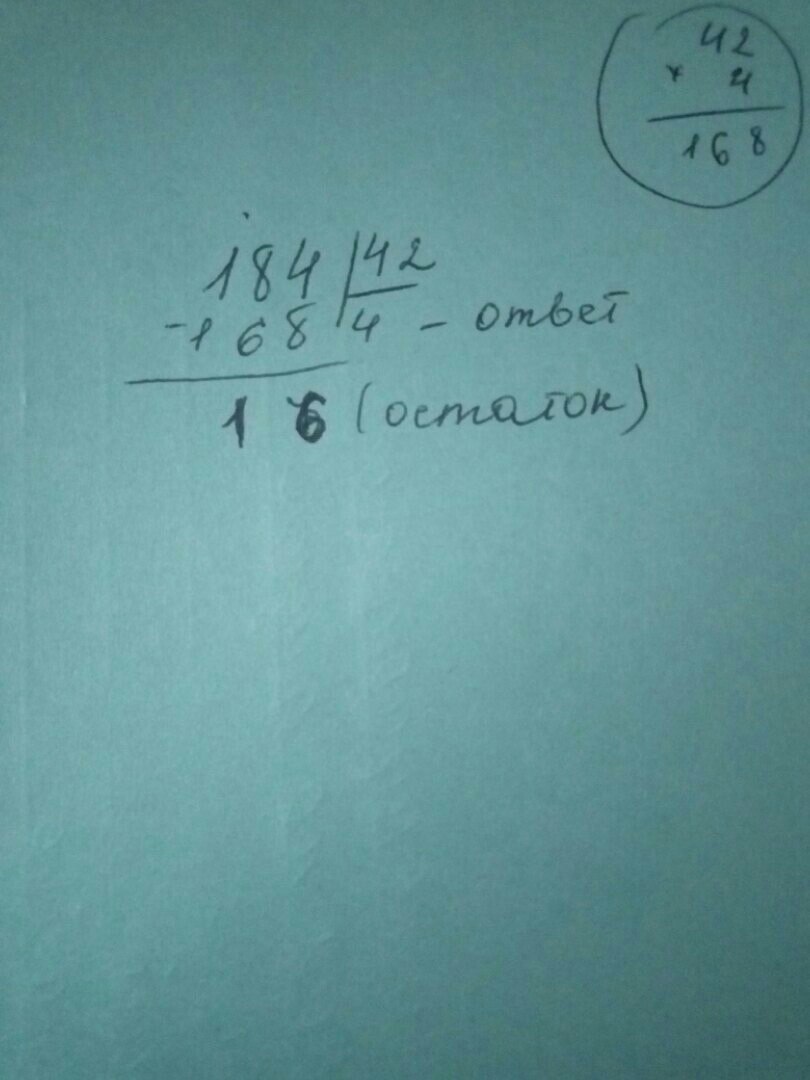 42
× 4
168
184 | 42
-168 | 4 - ответ
16 (остаток)